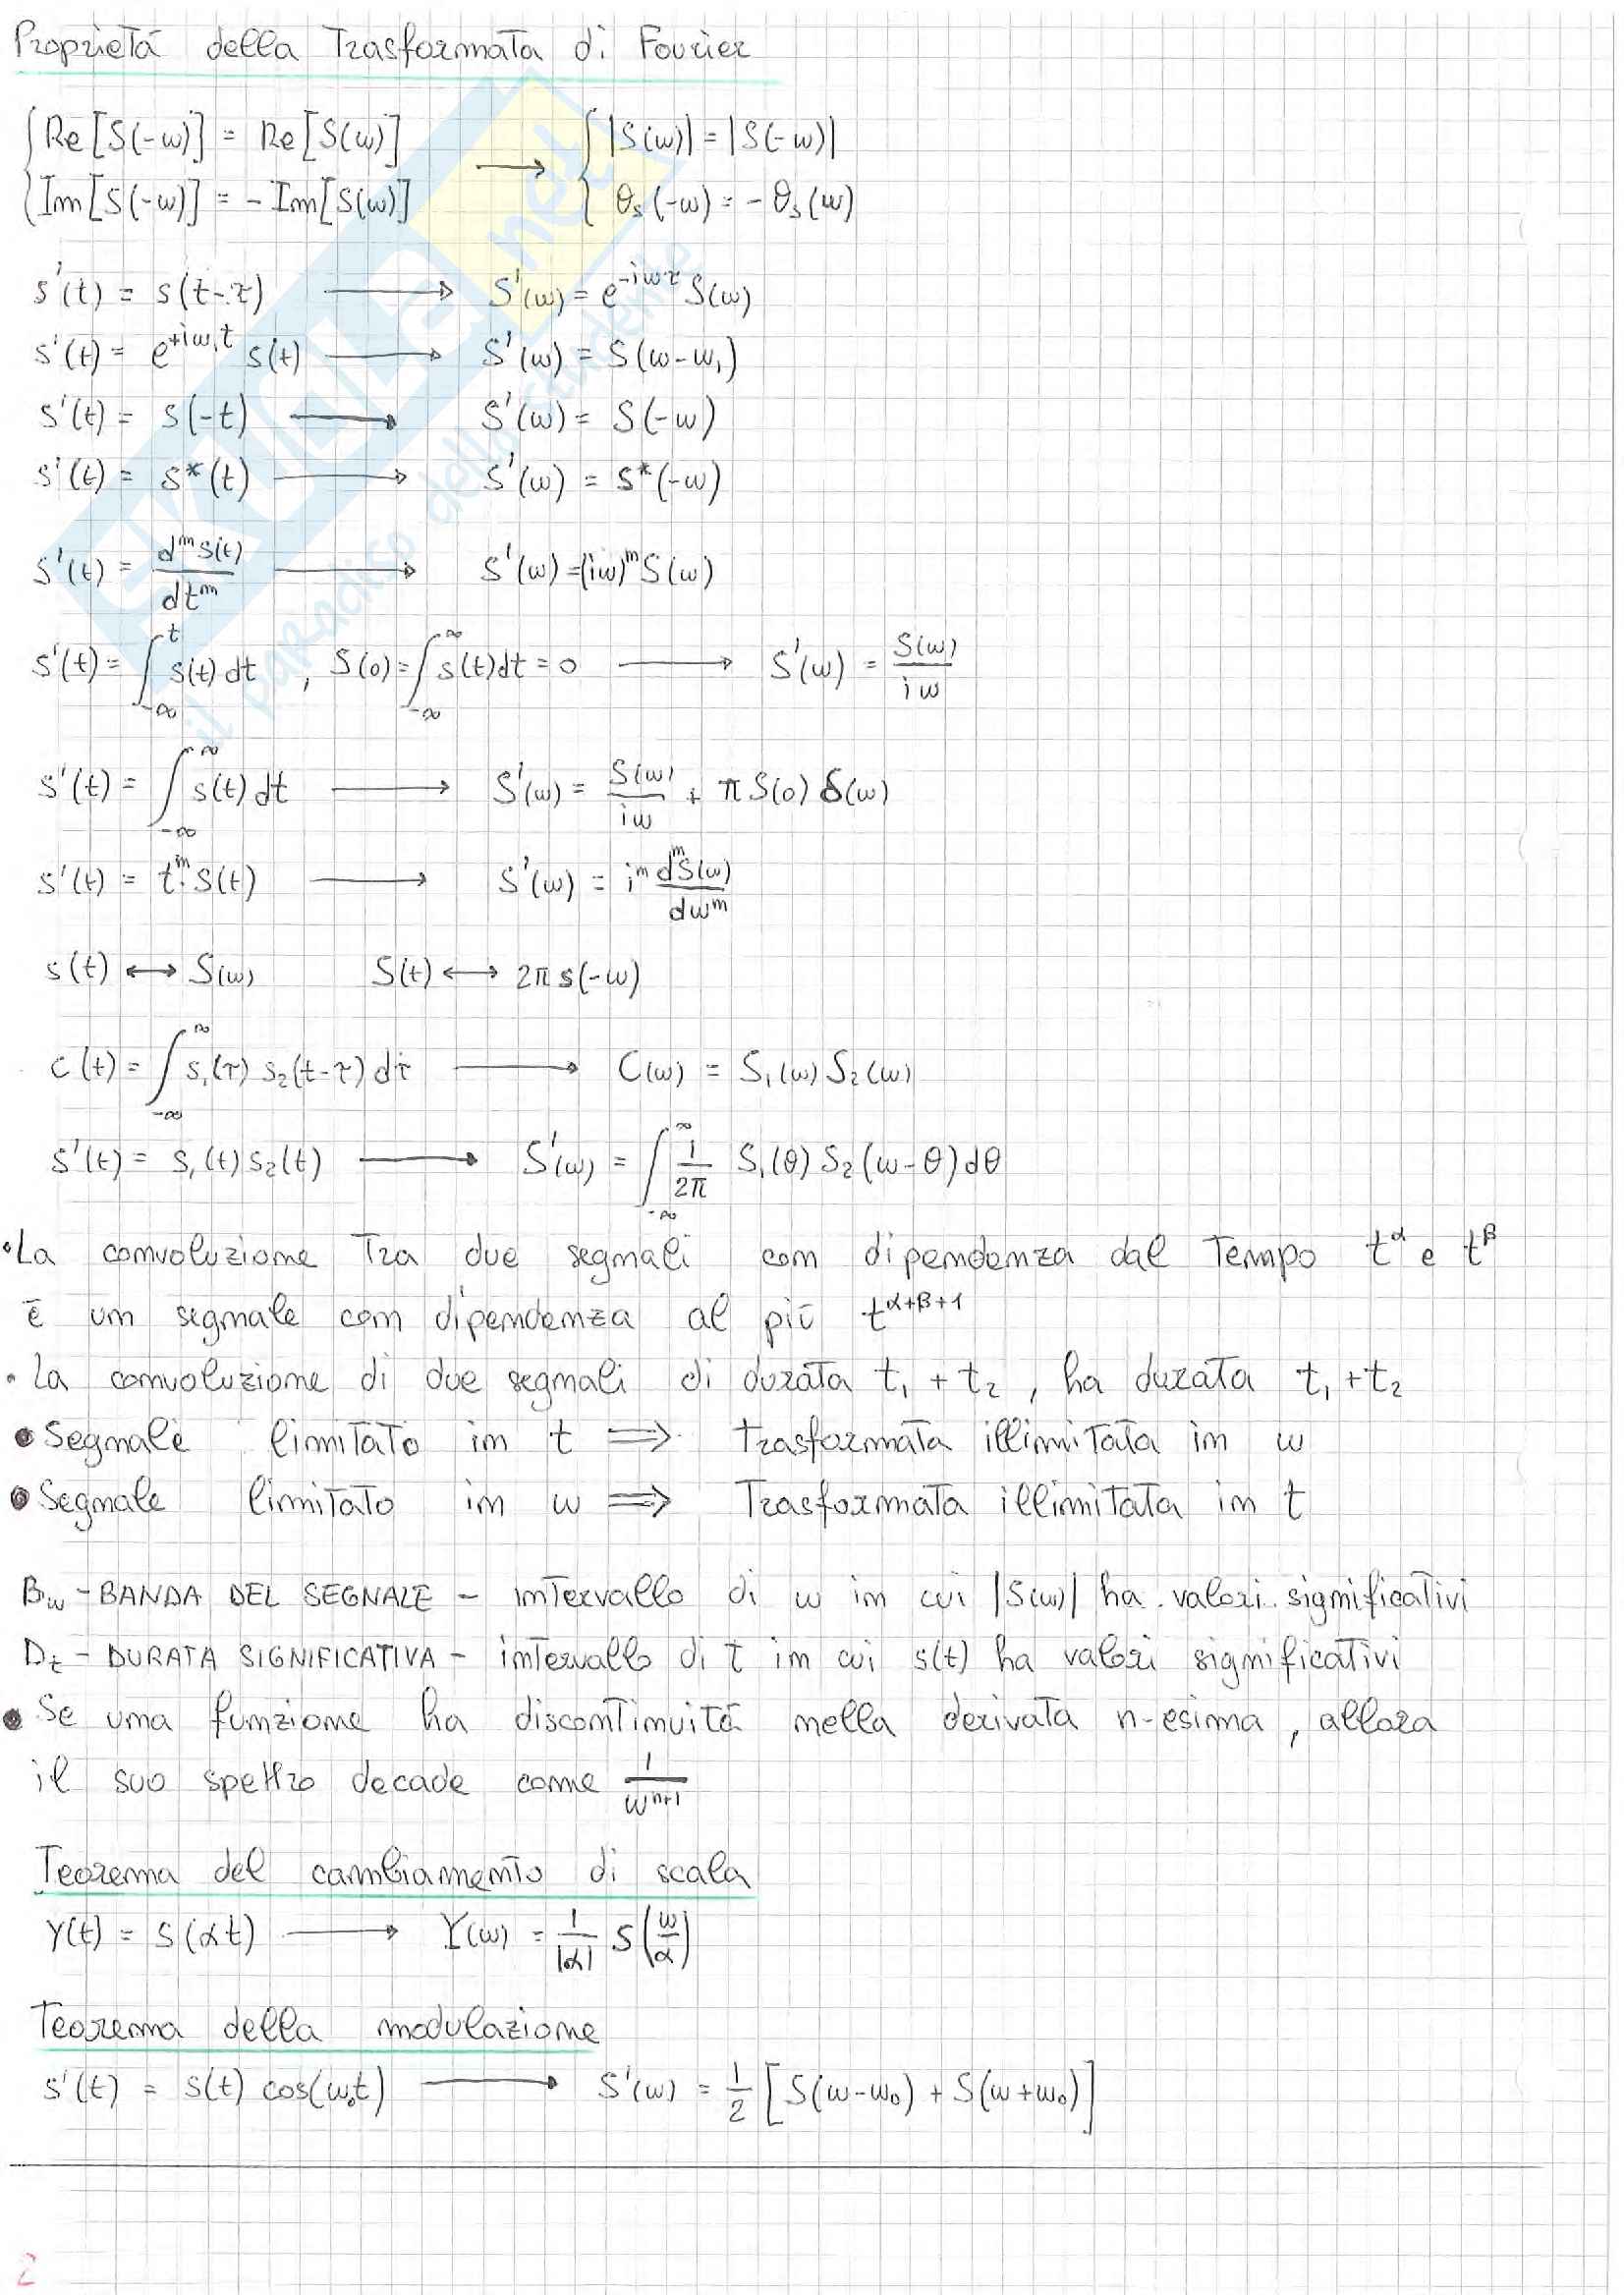 Proprietà della Trasformata di Fourier
{ Re[S(-ω)] = Re[S(ω)] → { |S(ω)| = |S(-ω)|
{ Im[S(-ω)] = - Im[S(ω)] { θs(-ω) = - θs(ω)
s'(t) = s(t-τ) → S'(ω) = e^{-iωτ} S(ω)
s'(t) = e^{+iω₁t} s(t) → S'(ω) = S(ω-ω₁)
s'(t) = s(-t) → S'(ω) = S(-ω)
s'(t) = s*(t) → S'(ω) = S*(-ω)
s'(t) = d^m s(t)/dt^m → S'(ω) = (iω)^m S(ω)
s'(t) = ∫_{-∞}^{t} s(t) dt , S(0) = ∫_{-∞}^{∞} s(t) dt = 0 → S'(ω) = S(ω)/iω
s'(t) = ∫_{-∞}^{∞} s(t) dt → S'(ω) = S(ω)/iω + π S(0) δ(ω)
s'(t) = t^m · s(t) → S'(ω) = i^m d^m S(ω)/dω^m
s(t) ↔ S(ω) S(t) ↔ 2π s(-ω)
c(t) = ∫_{-∞}^{∞} s₁(τ) s₂(t-τ) dτ → C(ω) = S₁(ω) S₂(ω)
s'(t) = s₁(t) s₂(t) → S'(ω) = ∫_{-∞}^{∞} 1/2π S₁(θ) S₂(ω-θ) dθ
• La convoluzione tra due segnali con dipendenza dal tempo t^α e t^β
è un segnale con dipendenza al più t^{α+β+1}
• La convoluzione di due segnali di durata t₁ + t₂ , ha durata t₁ + t₂
• Segnale limitato in t ⟹ trasformata illimitata in ω
• Segnale limitato in ω ⟹ Trasformata illimitata in t
Bω - BANDA DEL SEGNALE - intervallo di ω in cui |S(ω)| ha valori significativi
Dt - DURATA SIGNIFICATIVA - intervallo di t in cui s(t) ha valori significativi
• Se una funzione ha discontinuità nella derivata n-esima, allora
il suo spettro decade come 1/ω^{n+1}
Teorema del cambiamento di scala
Y(t) = s(αt) → Y(ω) = 1/|α| S(ω/α)
Teorema della modulazione
s'(t) = s(t) cos(ω₀t) → S'(ω) = 1/2 [S(ω-ω₀) + S(ω+ω₀)]
2